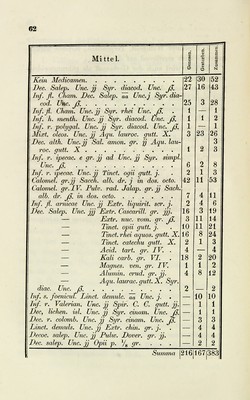 62
Mittel. Genesen. Gestorben. Zusammen.
Kein Medicamen. 22 30 52
Dec. Salep. Unc. jj Syr. diacod. Unc. β. 27 16 43
Inf. fl. Cham. Dec. Salep. aa Unc. j Syr. dia-
cod. Unc. β. 25 3 28
Inf. fl. Cham. Unc. jj Syr. rhei Unc. β. 1 — 1
Inf. h. menth. Unc. jj Syr. diacod. Unc. β. 1 1 2
Inf. r. polygal. Unc. jj Syr. diacod. Unc. β. 1 — 1
Mixt. oleos. Unc. jj Aqu. lauroc. gutt. X. 3 23 26
Dec. alth. Unc. jj Sal. amon. gr. jj Aqu. lau-
roc. gutt. X 1 2 3
Inf. r. ipecac. e gr. jj ad Unc. jj Syr. simpl.
Unc. β. 6 2 8
Inf. r. ipecac. Unc. jj Tinct. opii gutt. j. 2 1 3
Calomel. gr. jj Sacch. alb. dr. j in dos. octo. 42 11 53
Calomel. gr. IV. Pulv. rad. Jalap. gr. jj Sach.
alb. dr. β. in dos. octo. 7 4 11
Inf. fl. arnicae Unc. jj Extr. liquirit. scr. j. 2 4 6
Dec. Salep. Unc. jjj Extr. Cascarill. gr. jjj. 16 3 19
— Extr. nuc. vom. gr. β. 3 11 14
— Tinct. opii gutt. j. 10 11 21
— Tinct. rhei aquos. gutt. X. 16 8 24
— Tinct. catechu gutt. X. 2 1 3
— Acid. tart. gr. IV. 4 — 4
— Kali carb. gr. VI. 18 2 20
— Magnes. ven. gr. IV. 1 1 2
— Alumin. crud. gr. jj. 4 8 12
— Aqu. laurac. gutt. X. Syr.
diac. Unc. β. 2 — 2
Inf. s. foenicul. Linct. demulc. aa Unc. j. — 10 10
Inf. r. Valerian. Unc. jj Spir. C. C. gutt. jj. — 1 1
Dec. lichen. isl. Unc. jj Syr. cinam. Unc. β. — 1 1
Dec. r. colomb. Unc. jj Syr. cinam. Unc. β. — 3 3
Linct. demulc. Unc. jj Extr. chin. gr. j. — 4 4
Decoc. salep. Unc. jj Pulv. Dover. gr. jj. — 4 4
Dec. salep. Unc. jj Opii p. 1/8 gr. — 2 2
Summa 216 167 383